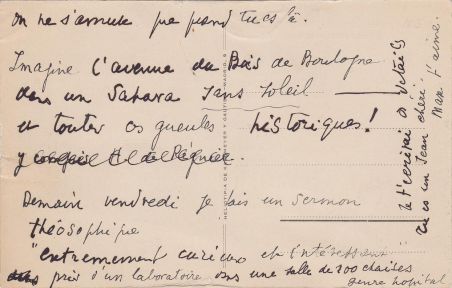 on ne s'amuse que quand tu es là.
Imagine l'avenue du Bois de Boulogne
dans un Sahara sans soleil
et toutes ces gueules historiques!
y compris H. de Régnier.
Demain vendredi je fais un sermon
théosophique
"extrêmement curieux et intéressant"
près d'un laboratoire dans une salle de 200 chaises
genre hôpital
je t'écrirai
Tu es un Jean chéri
Max t'aime.